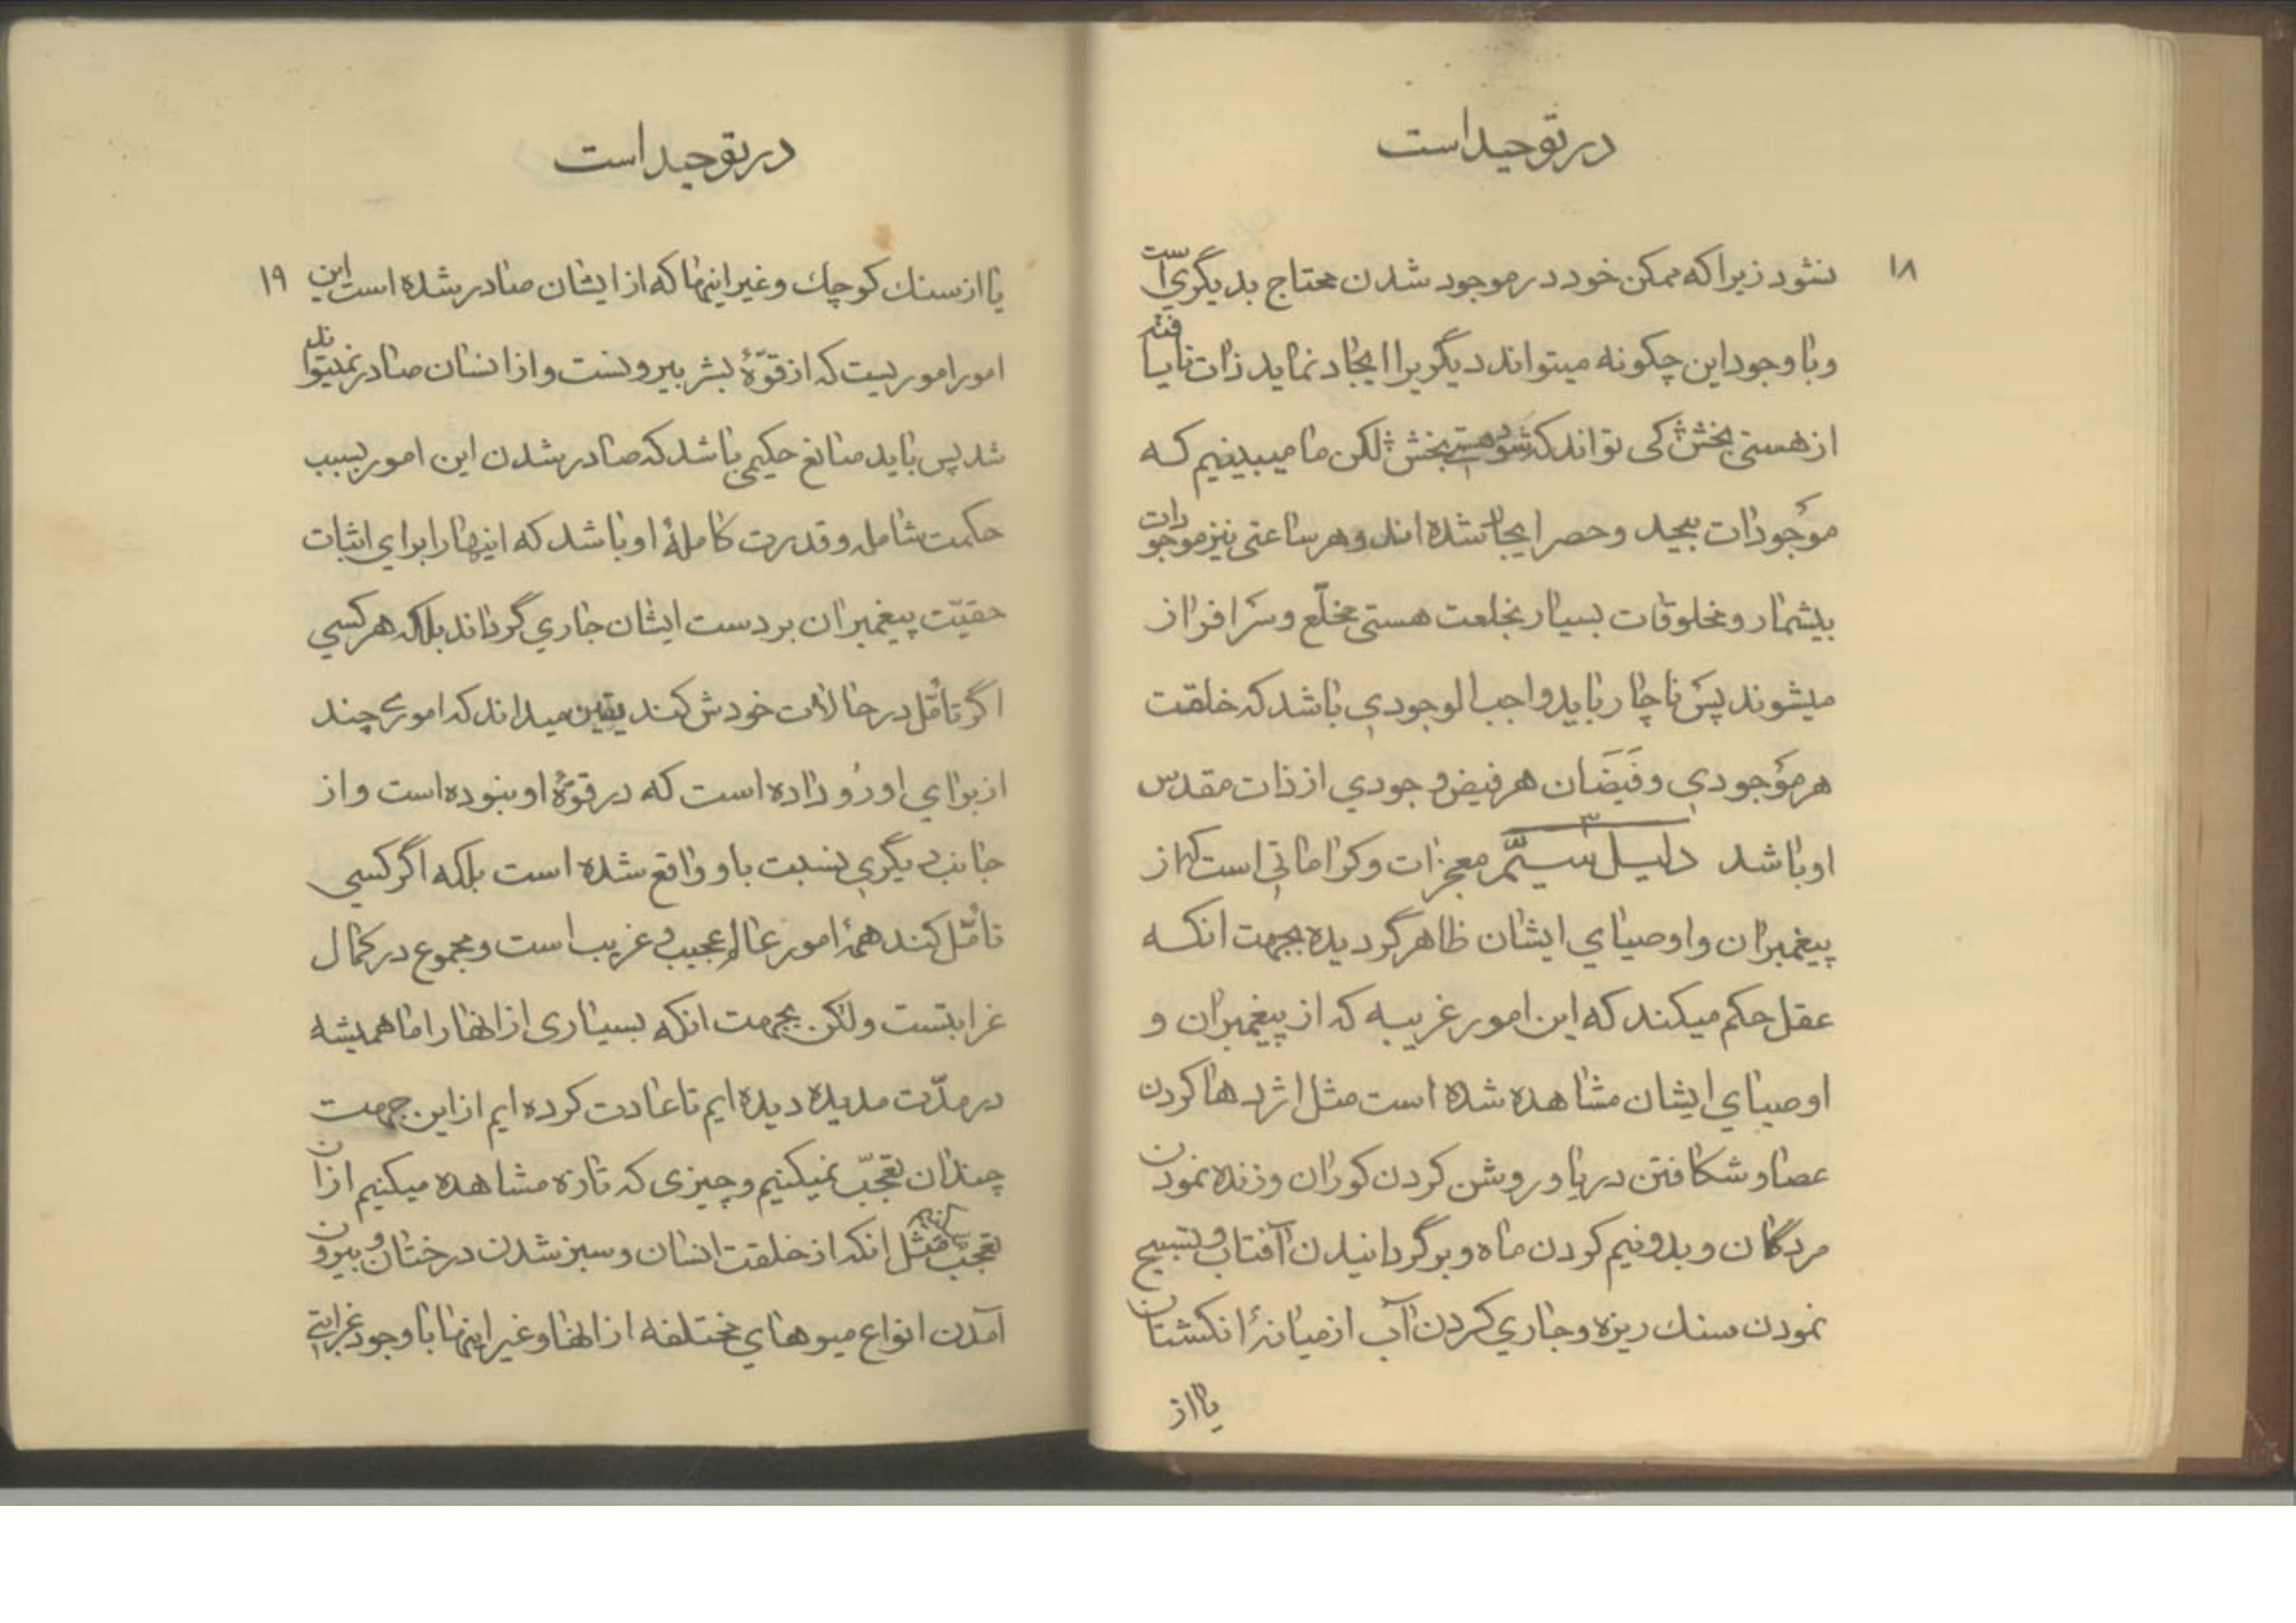 در توحید است
۱۸
نشود زیرا که ممکن خود در موجود شدن محتاج بدیگری است
و با وجود این چگونه میتواند دیگریرا ایجاد نماید ذات نایافته
از هستی بخش کی تواند که شود هستی بخش لکن ما میبینیم که
موجودات بیحد و حصر ایجاد شده اند و هر ساعتی نیز موجودات
بیشمار و مخلوقات بسیار بخلعت هستی مخلّع و سرافراز
میشوند پس ناچار باید واجب الوجودی باشد که خلقت
هر موجودی و فَیَضَان هر فیض وجودی از ذات مقدس
او باشد دلیل سیّم ۳ معجزات و کراماتی است که از
پیغمبران و اوصیای ایشان ظاهر گردیده بجهت انکه
عقل حکم میکند که این امور غریبه که از پیغمبران و
اوصیای ایشان مشاهده شده است مثل اژدها کردن
عصا و شکافتن دریا و روشن کردن کوران و زنده نمودن
مردگان و بدو نیم کردن ماه و برگردانیدن آفتاب و تسبیح
نمودن سنك ریزه و جاری کردن آب از میانهٔ انکشتان
یا از
در توحید است
۱۹
یا از سنك کوچك و غیر اینها که از ایشان صادر شده است این
امور اموریست که از قوّهٔ بشر بیرونست و از انسان صادر نمیتواند
شد پس باید صانع حکیمی باشد که صادر شدن این امور بسبب
حکمت شامله و قدرت کاملهٔ او باشد که اینها را برای اثبات
حقیّت پیغمبران بر دست ایشان جاری گرداند بلکه هر کسی
اگر تأمّل در حالات خودش کند یقین میداند که اموری چند
از برای او رُو داده است که در قوّهٔ او نبوده است و از
جانب دیگری نسبت باو واقع شده است بلکه اگر کسی
تأمّل کند همهٔ امور عالم عجیب و غریب است و مجموع در کمال
غرابتست ولکن بجهت انکه بسیاری از انها را ما همیشه
در مدّت مدیده دیده ایم تا عادت کرده ایم از این جهت
چندان تعجّب نمیکنیم و چیزی که تازه مشاهده میکنیم از ان
تعجّب میکنیم مثل انکه از خلقت انسان و سبز شدن درختان و بیرون
آمدن انواع میوهای مختلفه از انها و غیر اینها با وجود غرابتی